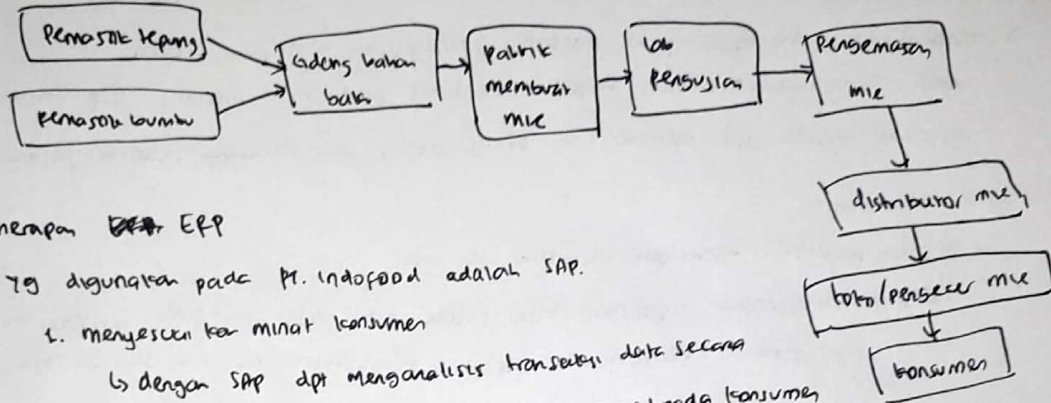 Pemasok tepung
Pemasok bumbu
Gudeng bahan
baku
pabrik
membuat
mie
lab
pengujian
pengemasan
mie
distributor mie
toko/pengecer mie
konsumen
nerapan ERP
yg digunakan pada Pt. Indofood adalah SAP.
1. menyesuaikan minat konsumen
↳ dengan SAP dpt menganalisis transaksi data secara
pada konsumen